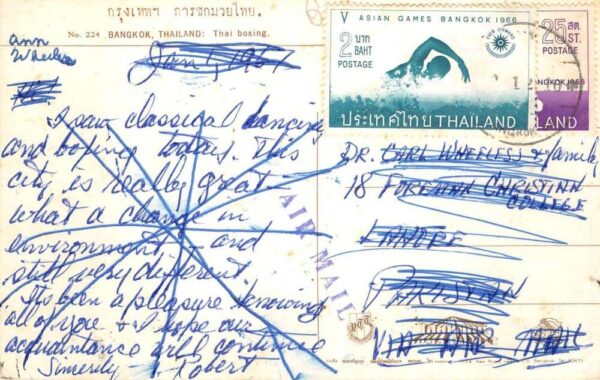 กรุงเทพฯ การชกมวยไทย.
No. 224 BANGKOK, THAILAND: Thai boxing.
ann
Wheeless
Jan 1, 1967
I saw classical dancing
and boxing today. This
city is really great -
what a change in
environment - and
still very different.
It's been a pleasure knowing
all of you & I hope our
acquaintance will continue
Sincerely - Robert
V ASIAN GAMES BANGKOK 1966
2 บาท
BAHT
POSTAGE
ประเทศไทย THAILAND
25 สต.
ST.
POSTAGE
BANGKOK 1966
THAILAND
AIR MAIL
DR. CARL WHEELESS & Family
18 FOREMAN CHRISTIAN
COLLEGE
LAHORE
PAKISTAN
VIA AIR MAIL